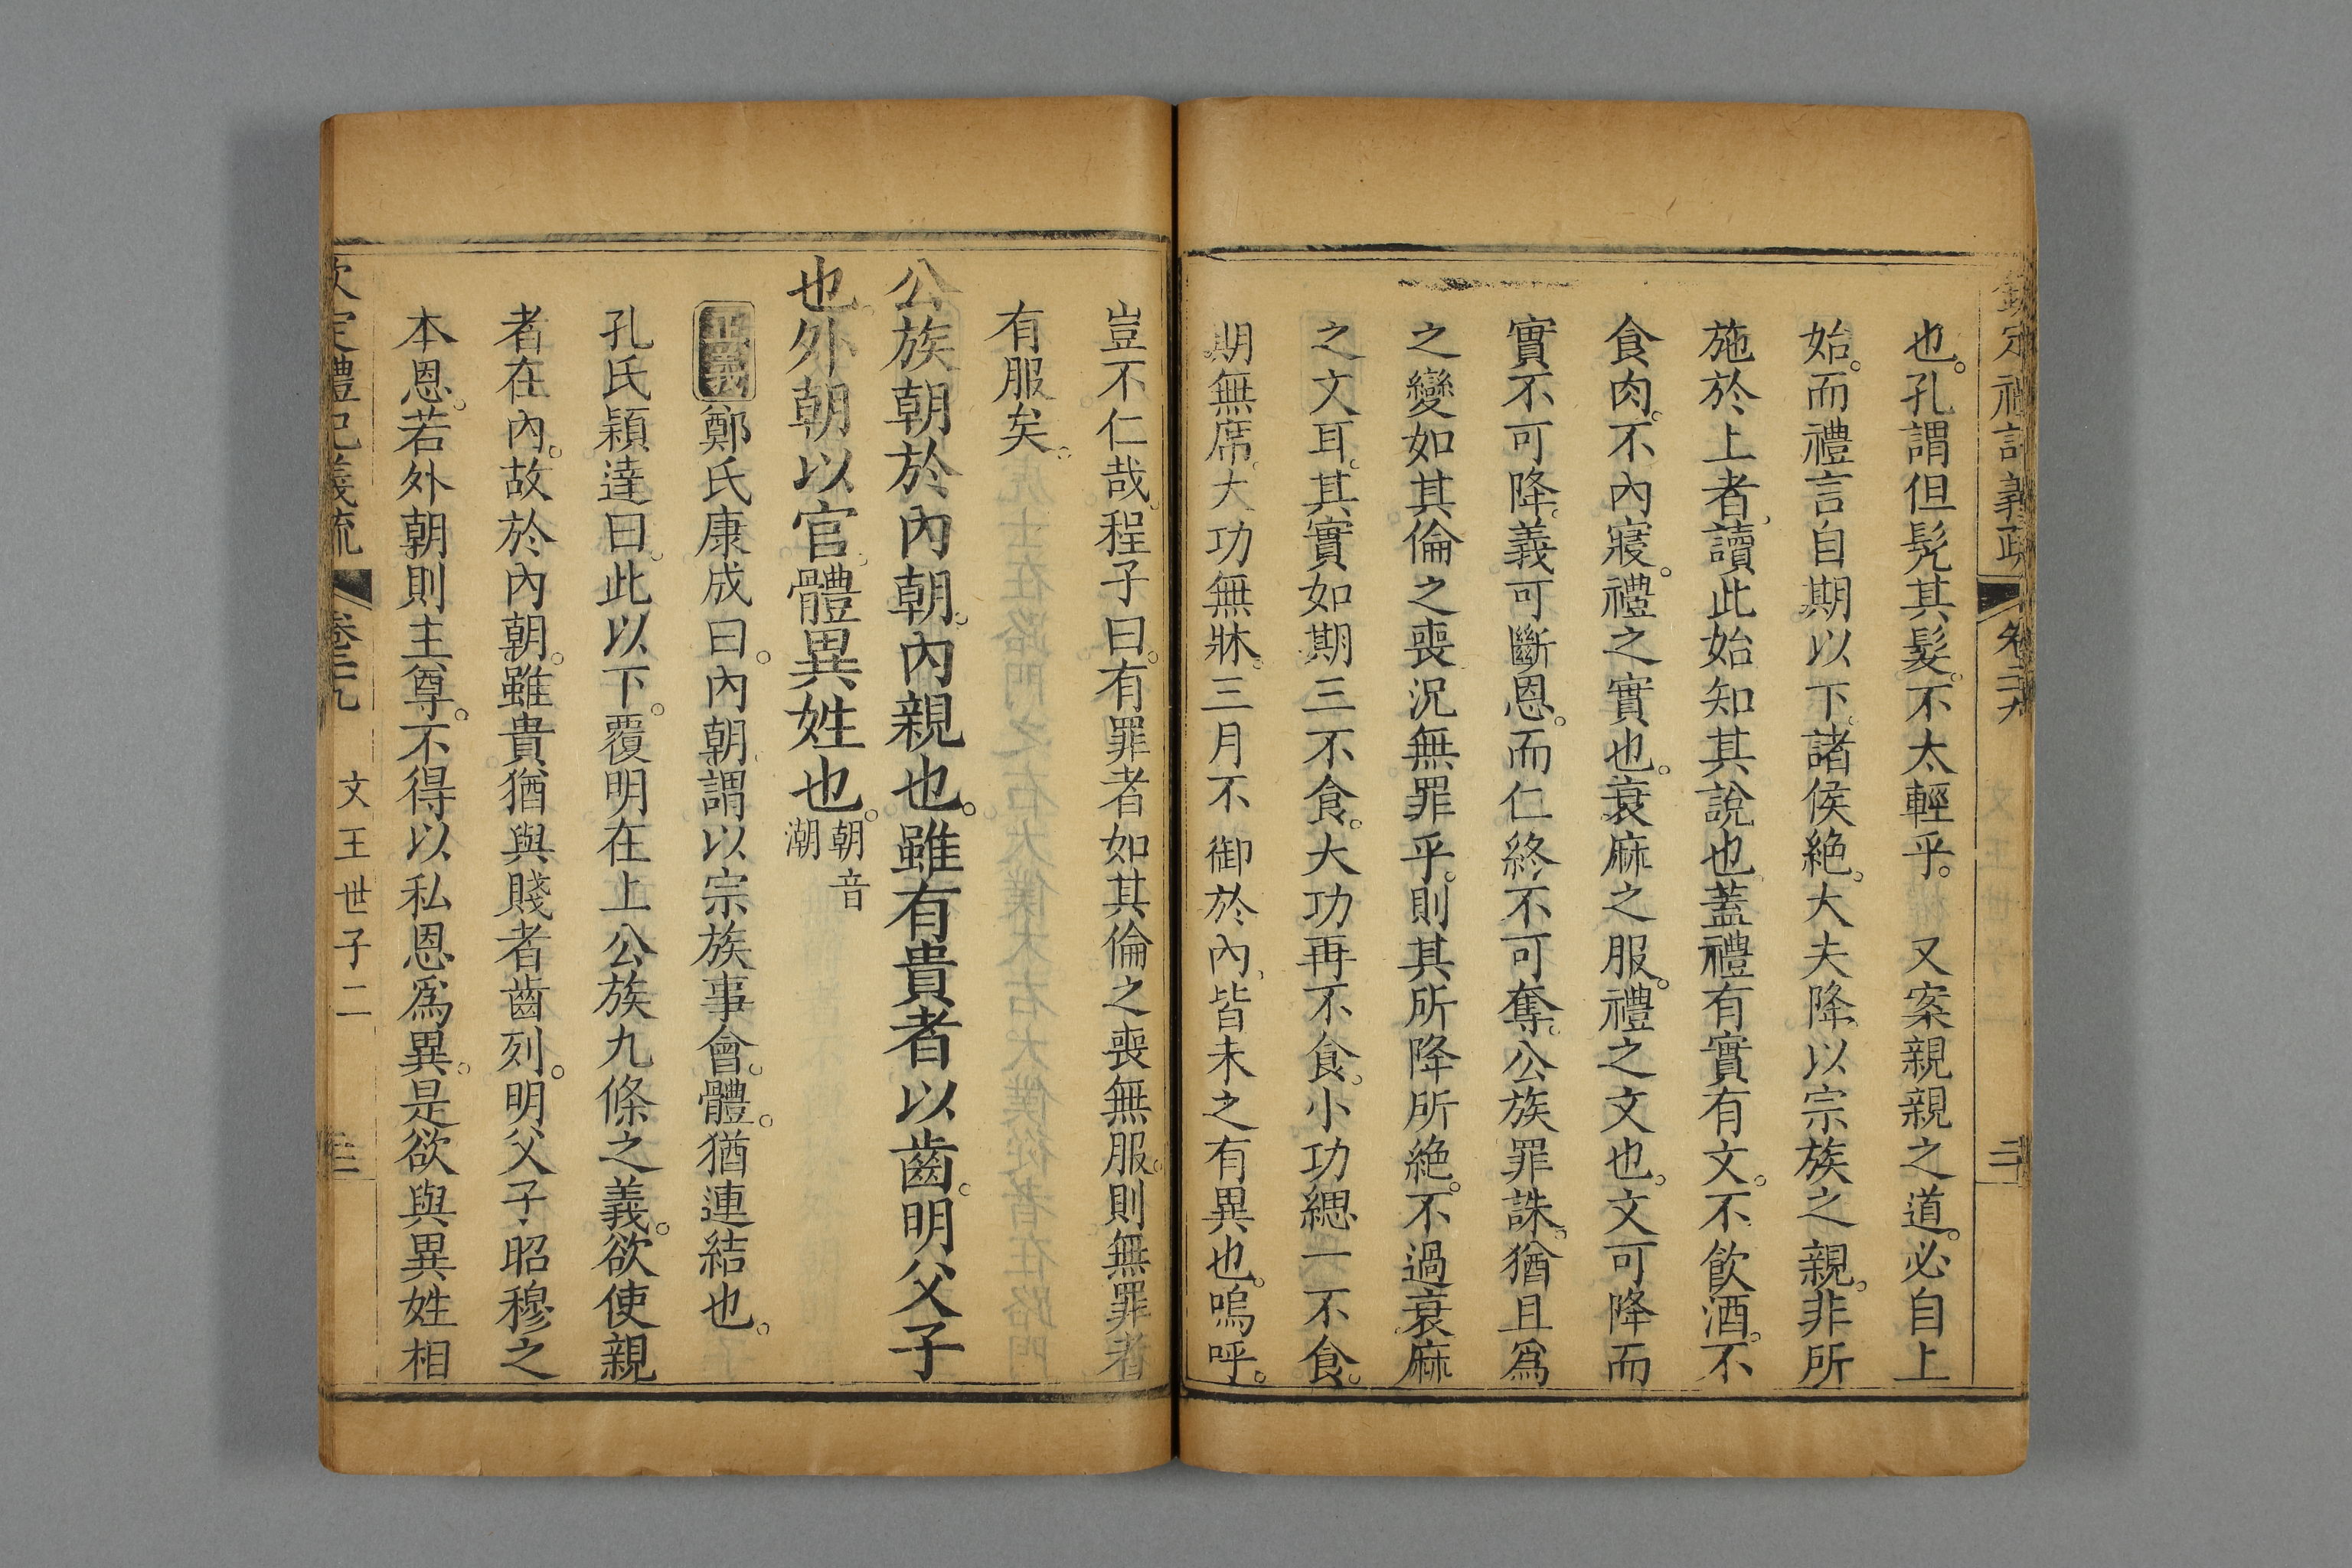 欽定禮記義疏 卷二十九 二十
也。孔謂但髡其髮。不太輕乎。 又案親親之道。必自上
始。而禮言自期以下。諸侯絶。大夫降。以宗族之親。非所
施於上者。讀此始知其說也。蓋禮有實有文。不飲酒。不
食肉。不內寢。禮之實也。衰麻之服。禮之文也。文可降而
實不可降。義可斷恩。而仁終不可奪。公族罪誅。猶且爲
之變如其倫之喪。況無罪乎。則其所降所絶。不過衰麻
之文耳。其實如期三不食。大功再不食。小功緦一不食。
期無席。大功無牀。三月不御於內。皆未之有異也。嗚呼。
豈不仁哉。程子曰。有罪者如其倫之喪無服。則無罪者
有服矣。
公族朝於內朝。內親也。雖有貴者以齒。明父子
也。外朝以官。體異姓也。朝音潮
正義鄭氏康成曰。內朝謂以宗族事會。體。猶連結也。
孔氏穎達曰。此以下。覆明在上公族九條之義。欲使親
者在內。故於內朝。雖貴猶與賤者齒列。明父子昭穆之
本恩。若外朝則主尊。不得以私恩爲異。是欲與異姓相
欽定禮記義疏 卷二十九 文王世子二